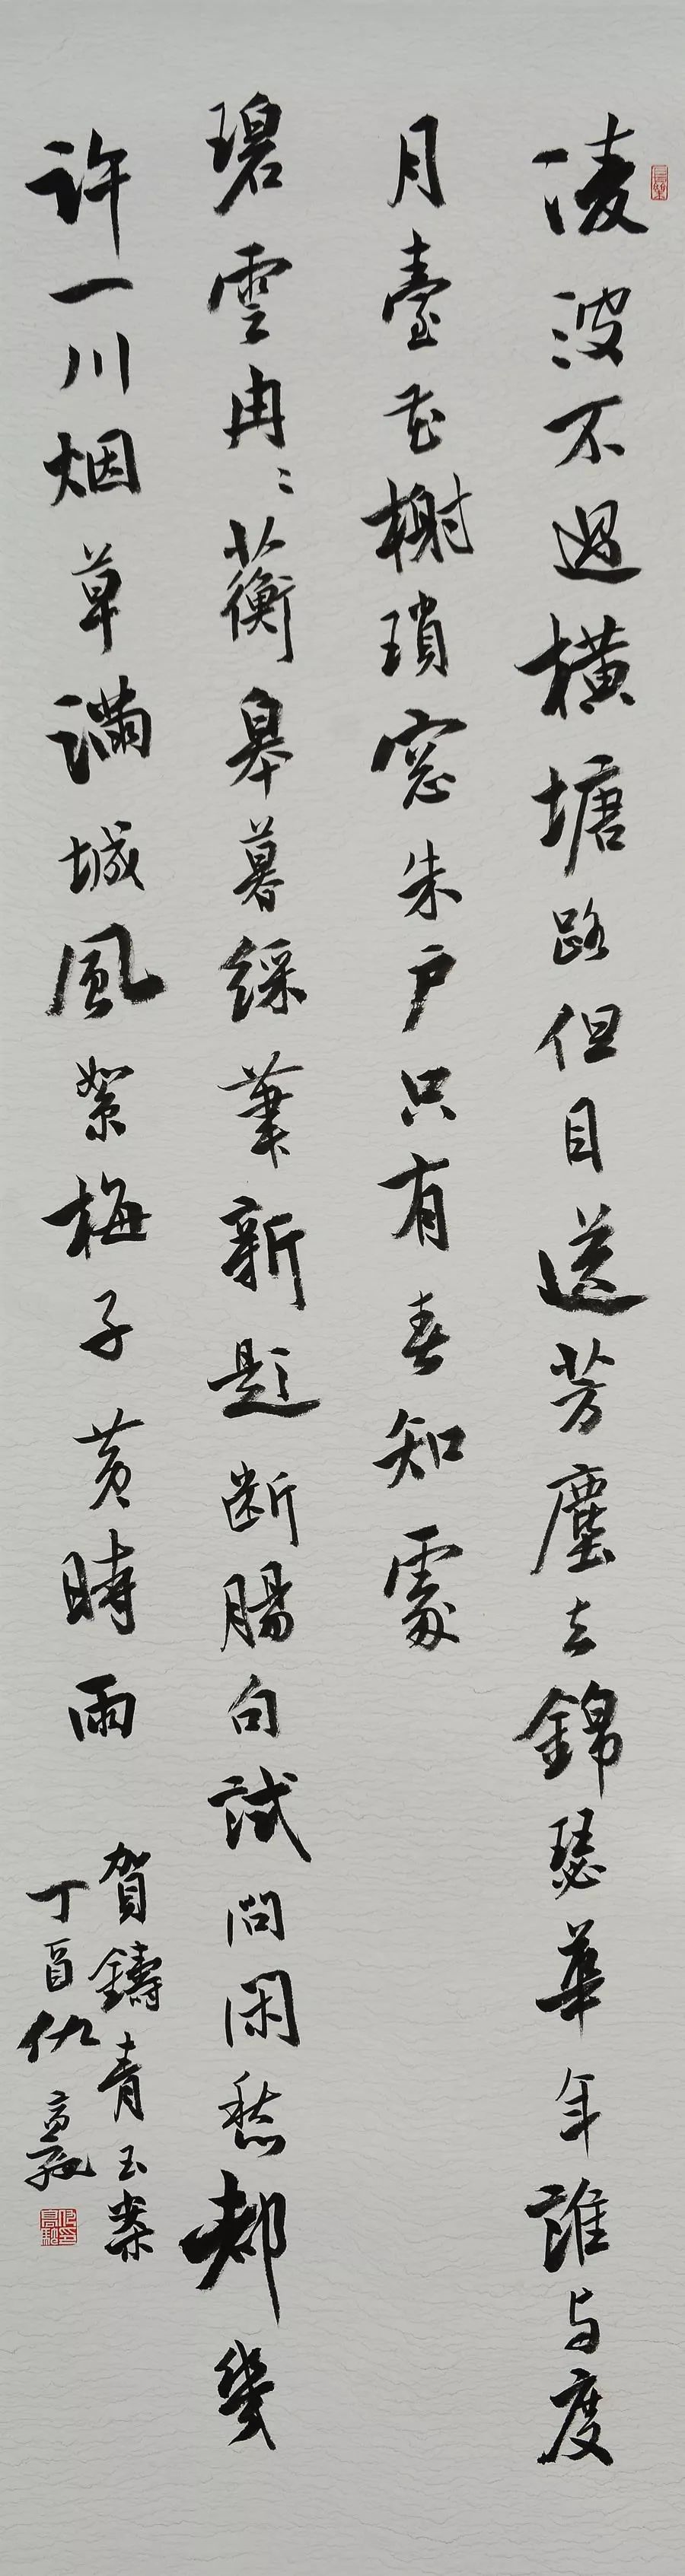 淩波不過橫塘路但目送芳塵去錦瑟華年誰与度
月臺花榭瑣窓朱户只有春知處
碧雲冉〻蘅皋暮綵筆新題断腸句試問閑愁都幾
許一川烟草滿城風絮梅子黄時雨
賀鑄青玉案
丁酉仇高